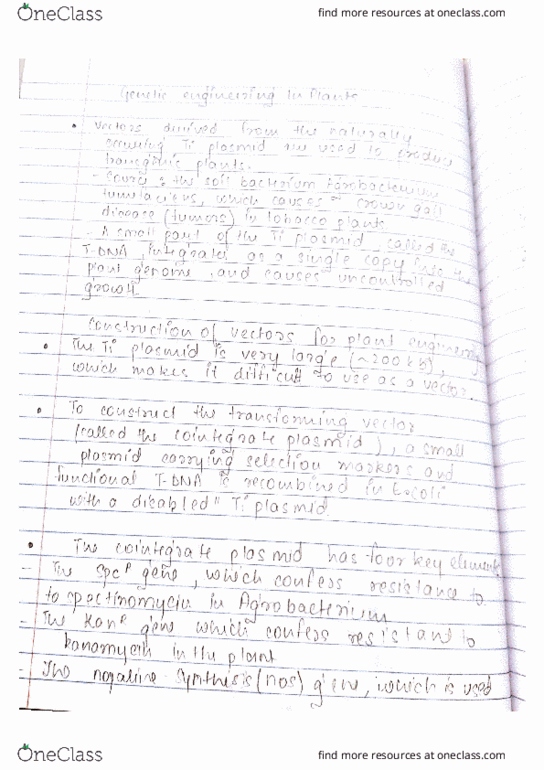 OneClass
find more resources at oneclass.com
Genetic engineering In Plants
• Vectors derived from the naturally
occuring Ti plasmid are used to produce
transgenic plants.
- Source : the soil bacterium
which causes crown gall
disease (tumors) in tobacco plants.
- A small part of the Ti plasmid, called the
T-DNA, integrates as a single copy into the
plant genome and causes uncontrolled
growth.
Construction of vectors for plant
• The Ti plasmid is very large (~200 kb),
which makes it difficult to use as a vector.
• To construct the transforming vector
(called the cointegrate plasmid), a small
plasmid carrying selection markers and
functional T-DNA is recombined in E.coli
with a disabled" Ti plasmid.
• The cointegrate plasmid has four key elements
- The Spcᴿ gene, which confess resistance to
to spectinomycin in Agrobacterium
- The Kanᴿ gene which confess resistant to
in the plant
- The synthesis (nos) gene, which is used
OneClass
find more resources at oneclass.com